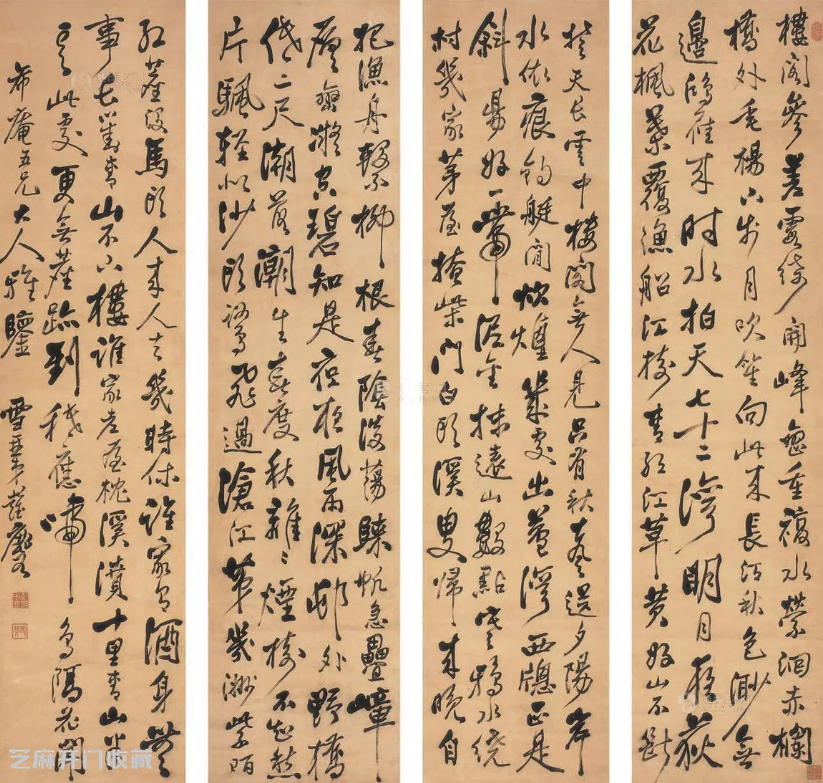 樓閣參差霞綺開峰巒重複水縈洄赤欄
橋外垂楊下步月吹笙向此來長江秋色渺無
邊鴻雁來時水拍天七十二灣明月夜荻
花楓葉覆漁船江樹青紅江草黃好山不斷
楚天長雲中樓閣無人見只有秋聲送夕陽岸
水依痕釣艇閒炊煙幾處出蘆灣西窗正是
斜陽好一帶泥金抹遠山數點寒鴉水繞
村幾家茅屋掩柴門白頭溪叟歸來晚自
把漁舟繫柳根春陰帆急疊嶂
層巒凝空碧知是夜風雨深外野橋
低二尺潮落潮生春度秋離離煙樹不知愁
片颿輕似沙頭鷺飛過滄江第幾洲紫陌
紅塵沒馬頭人來人去幾時休誰家有酒身無
事長對青山不下樓誰家老屋枕溪濆十里青山半
是雲此處更無塵跡到秪應啼鳥隔花聞
希庵五兄大人雅鑒 雪琴彭玉麐
芝麻开门收藏